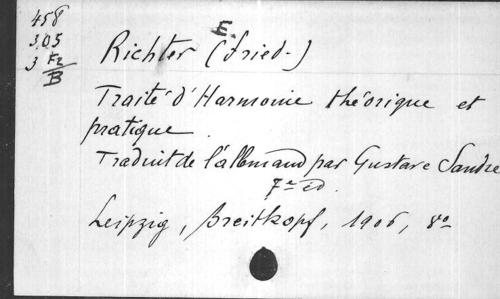 458
3.05
3 Fz
B
Richter (E. Fried.)
Traité d'Harmonie théorique et
pratique.
Traduit de l'allemand par Gustave Sandre
7e éd.
Leipzig, Breitkopf, 1906, 8o